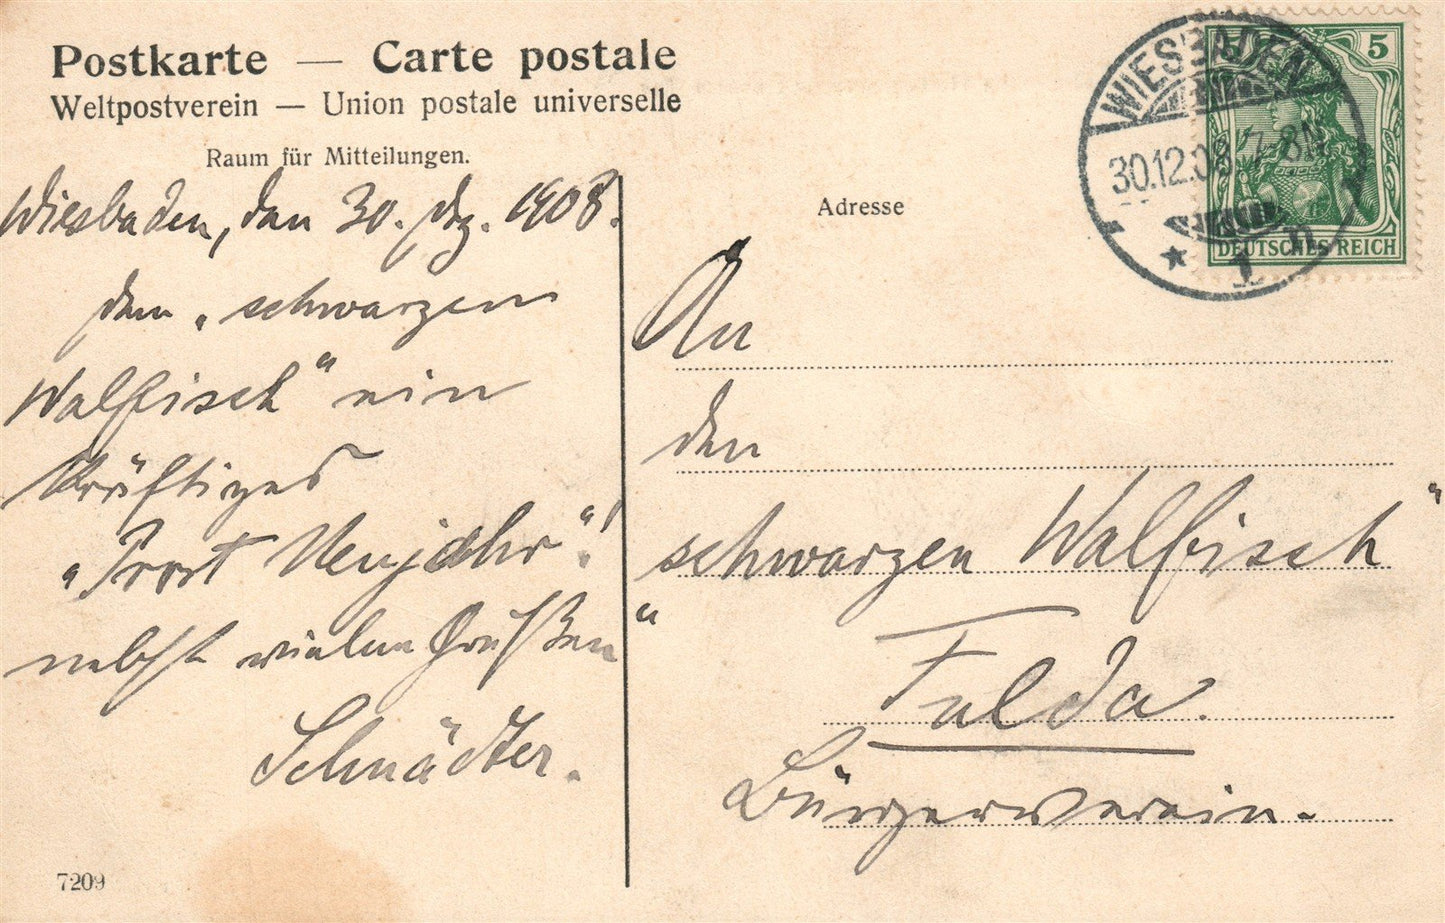 Postkarte — Carte postale
Weltpostverein — Union postale universelle
Raum für Mitteilungen.
Wiesbaden, den 30. Dez. 1908.
Dem „schwarzen
Walfisch“ ein
kräftiges
„Prost Neujahr“!
nebst vielen Grüßen
Schnädter.
7209
Adresse
An
den
„schwarzen Walfisch“
Fulda.
Bürgerverein.
WIESBADEN
30.12.08.7-8N
* 1 n
5 5
DEUTSCHES REICH